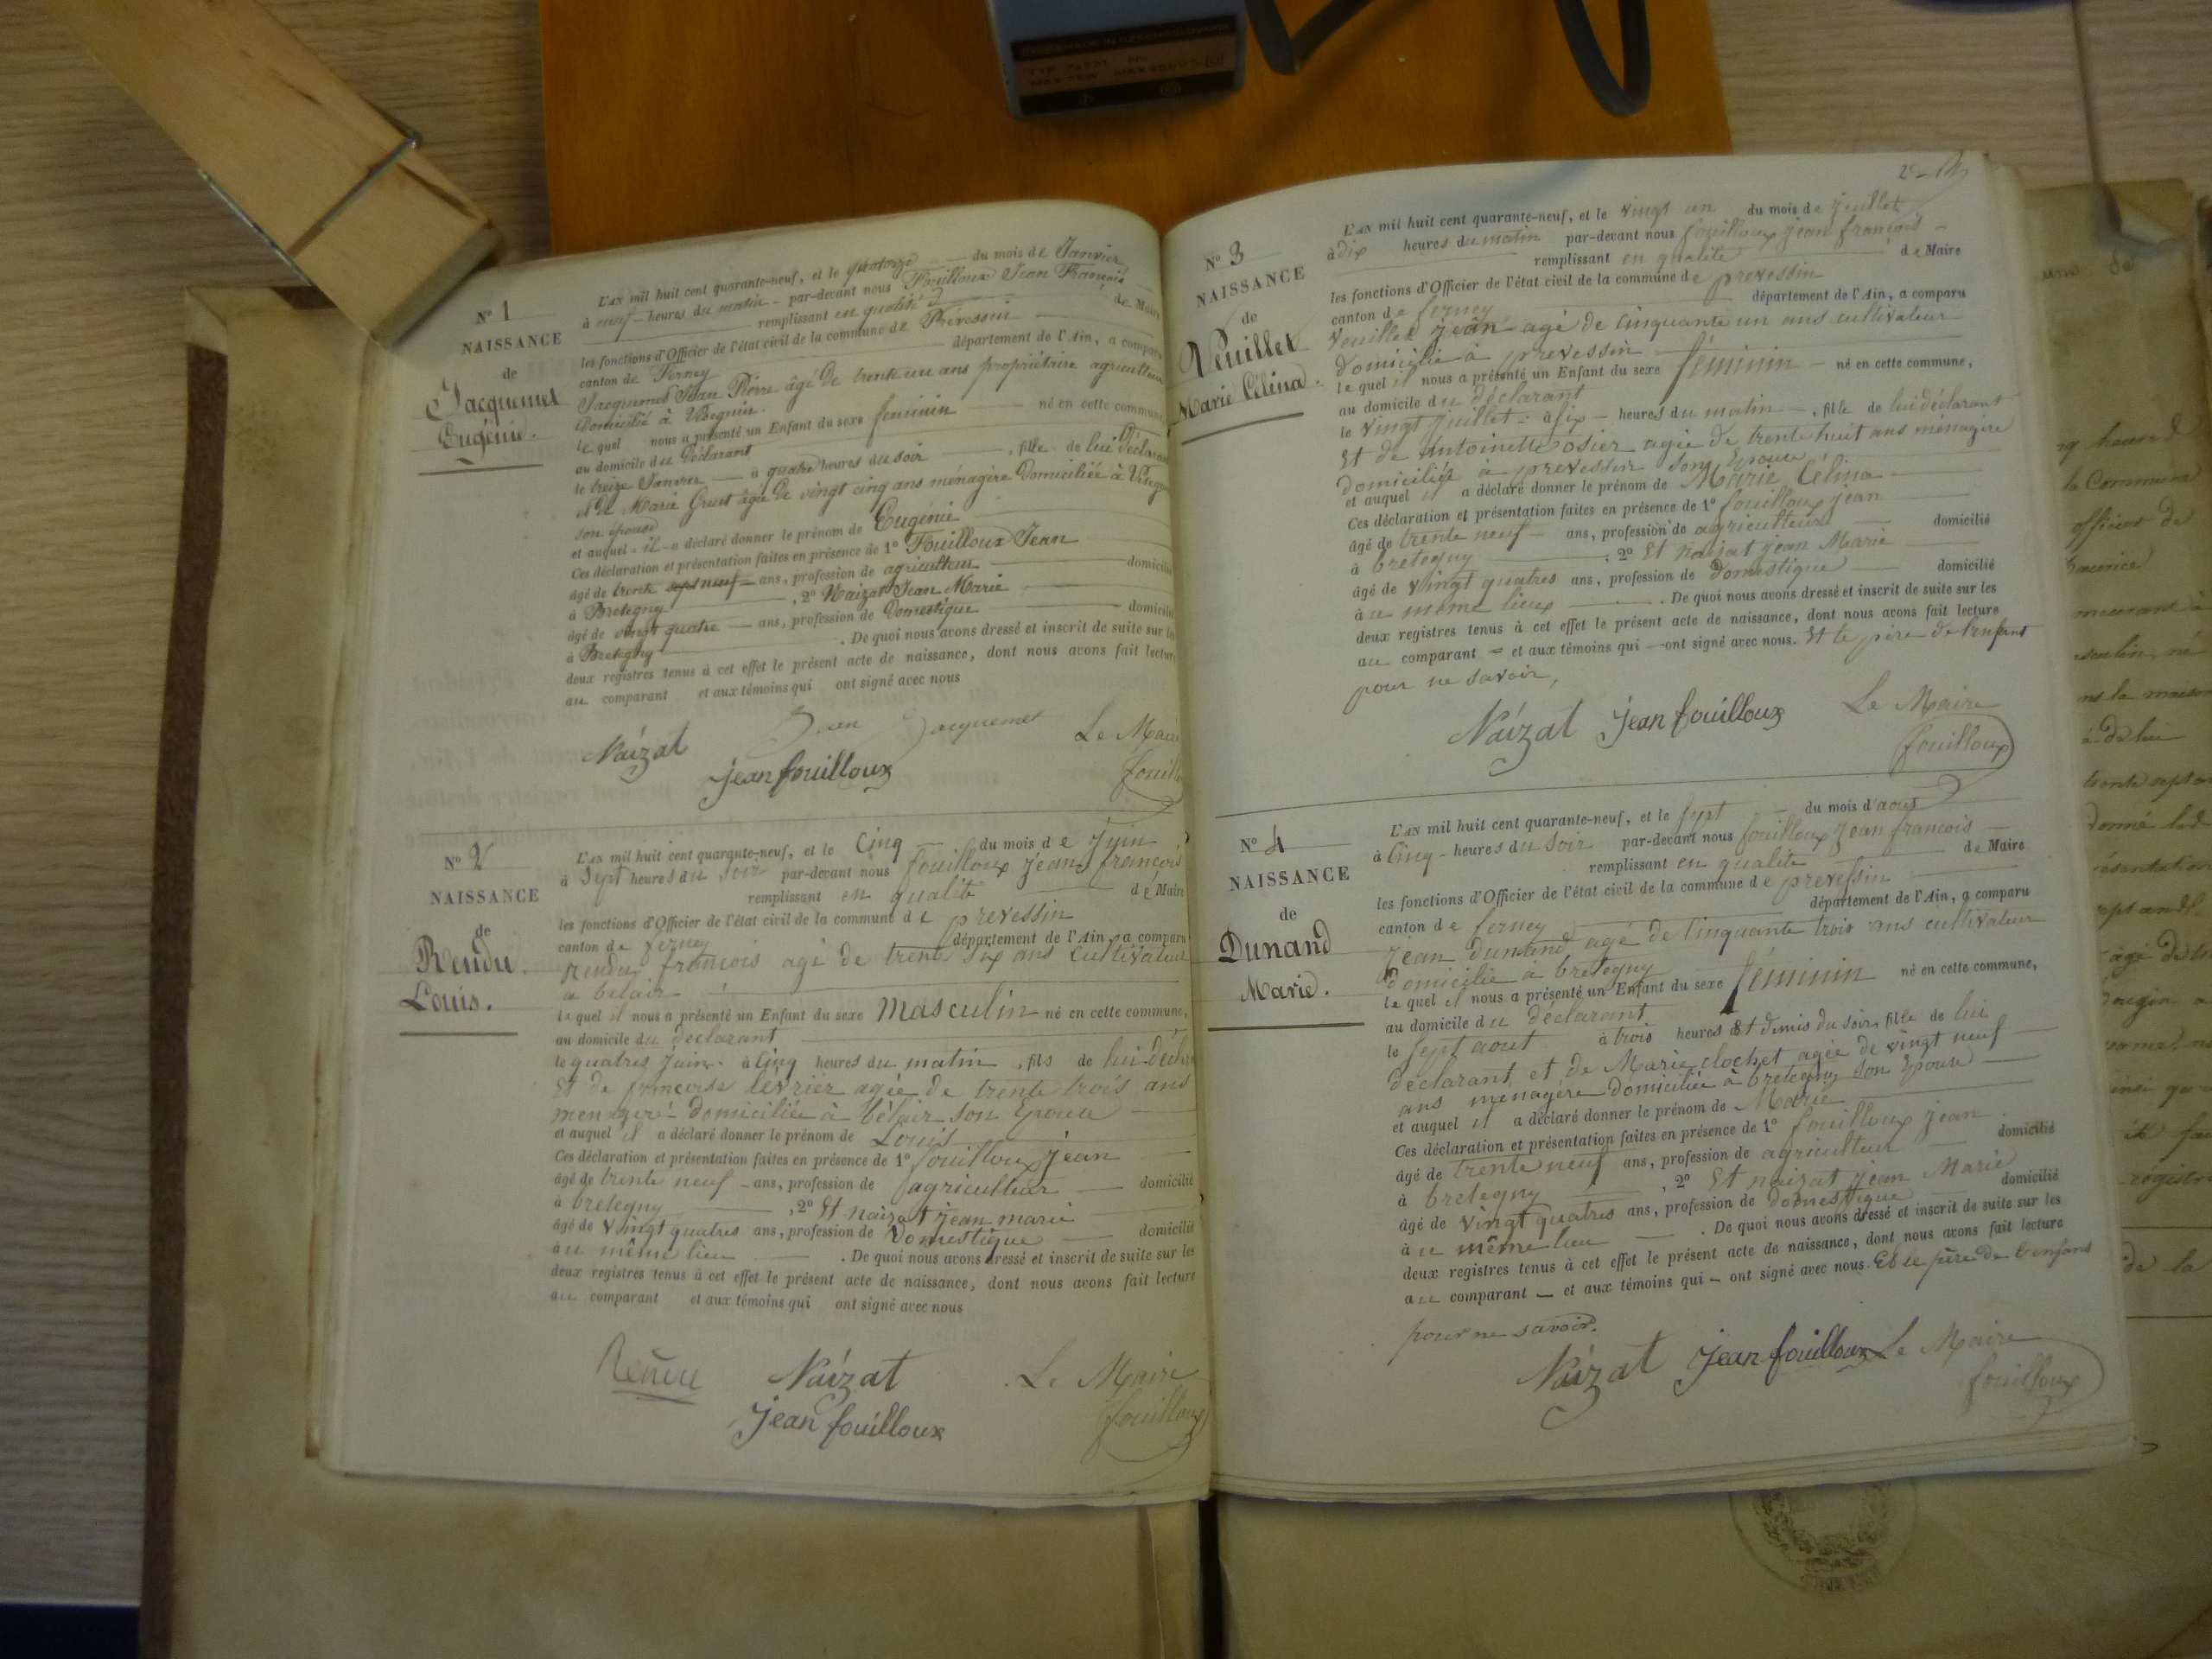 N° 1
NAISSANCE
de
Jacquemet
Eugénie.
L'AN mil huit cent quarante-neuf, et le quatorze du mois de Janvier
à neuf heures du matin par-devant nous Fouilloux Jean François
remplissant en qualité de Maire
les fonctions d'Officier de l'état civil de la commune de Prévessin
canton de Ferney département de l'Ain, a comparu
Jacquemet Jean Pierre âgé de trente un ans propriétaire agriculteur
domicilié à
le quel nous a présenté un Enfant du sexe feminin né en cette commune
au domicile du Déclarant
le treize Janvier à quatre heures du soir, fille de lui Déclarant
et de Marie âgée de vingt cinq ans ménagère Domiciliée à
son épouse
et auquel il a déclaré donner le prénom de Eugénie
Ces déclaration et présentation faites en présence de 1° Fouilloux Jean
âgé de trente sept neuf ans, profession de agriculteur domicilié
à Bretegny, 2° Naizat Jean Marie
âgé de vingt quatre ans, profession de Domestique domicilié
à Bretegny. De quoi nous avons dressé et inscrit de suite sur les
deux registres tenus à cet effet le présent acte de naissance, dont nous avons fait lecture
au comparant et aux témoins qui ont signé avec nous
Naïzat Jean Jacquemet Le Maire
jean fouilloux fouilloux
N° 2
NAISSANCE
de
Rendu.
Louis.
L'AN mil huit cent quarante-neuf, et le Cinq du mois de Juin
à Sept heures du soir par-devant nous fouilloux jean françois
remplissant en qualité de Maire
les fonctions d'Officier de l'état civil de la commune de prevessin
canton de ferney département de l'Ain, a comparu
Rendu françois agé de trente six ans Cultivateur
a belair
le quel il nous a présenté un Enfant du sexe Masculin né en cette commune,
au domicile du déclarant
le quatres juin à Cinq heures du matin, fils de lui déclarant
Et de françoise levrier agée de trente trois ans
menagere Domiciliée à bélair son Epouse
et auquel il a déclaré donner le prénom de Louis
Ces déclaration et présentation faites en présence de 1° fouilloux jean
âgé de trente neuf ans, profession de agriculteur domicilié
à bretegny, 2° Et naizat jean marie
âgé de vingt quatres ans, profession de Domestique domicilié
à u même lieu. De quoi nous avons dressé et inscrit de suite sur les
deux registres tenus à cet effet le présent acte de naissance, dont nous avons fait lecture
au comparant et aux témoins qui ont signé avec nous
Rendu Naïzat Le Maire
jean fouilloux fouilloux
N° 3
NAISSANCE
de
Veuillet
Marie Célina.
L'AN mil huit cent quarante-neuf, et le vingt un du mois de juillet
à dix heures du matin par-devant nous fouilloux jean françois
remplissant en qualité de Maire
les fonctions d'Officier de l'état civil de la commune de prevessin
canton de ferney département de l'Ain, a comparu
Veuillet jean agé de Cinquante un ans cultivateur
domicilié à prevessin
le quel il nous a présenté un Enfant du sexe féminin né en cette commune,
au domicile du déclarant
le vingt juillet à six heures du matin, fille de lui déclarant
Et de Antoinette osier agée de trente huit ans ménagère
domiciliée à prevessin son Epouse
et auquel il a déclaré donner le prénom de Marie Célina
Ces déclaration et présentation faites en présence de 1° fouilloux jean
âgé de trente neuf ans, profession de agriculteur domicilié
à bretegny, 2° Et naizat jean Marie
âgé de vingt quatres ans, profession de Domestique domicilié
à u même lieux. De quoi nous avons dressé et inscrit de suite sur les
deux registres tenus à cet effet le présent acte de naissance, dont nous avons fait lecture
au comparant et aux témoins qui ont signé avec nous. Et le père de lenfant
pour ne savoir,
Naïzat jean fouilloux Le Maire
fouilloux
N° 4
NAISSANCE
de
Dunand
Marie.
L'AN mil huit cent quarante-neuf, et le sept du mois d'aout
à Cinq heures du soir par-devant nous fouilloux jean francois
remplissant en qualité de Maire
les fonctions d'Officier de l'état civil de la commune de prevessin
canton de ferney département de l'Ain, a comparu
jean Dunand agé de Cinquante trois ans cultivateur
domicilié à bretegny
le quel il nous a présenté un Enfant du sexe féminin né en cette commune,
au domicile du déclarant
le sept aout à trois heures Et demis du soir, fille de lui
déclarant et de Marie clochet agée de vingt neuf
ans menagère domiciliée à bretegny son Epouse
et auquel il a déclaré donner le prénom de Marie
Ces déclaration et présentation faites en présence de 1° fouilloux jean
âgé de trente neuf ans, profession de agriculteur domicilié
à bretegny, 2° Et naizat jean Marie
âgé de vingt quatres ans, profession de domestique domicilié
à u même lieu. De quoi nous avons dressé et inscrit de suite sur les
deux registres tenus à cet effet le présent acte de naissance, dont nous avons fait lecture
au comparant et aux témoins qui ont signé avec nous. Et le père de lenfant
pour ne savoir.
Naïzat jean fouilloux Le Maire
fouilloux